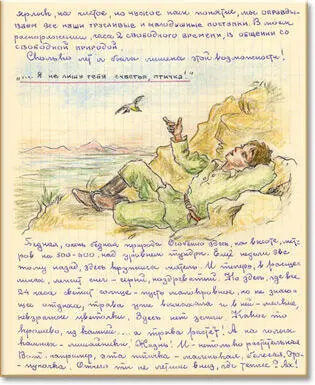 ярлык, но чистое, но нужное нам понятие, мы оправды-
ваем все наши трусливые и малодушные поступки. В моём
распоряжении часа 2 свободного времени, в общении со
свободной природой.
Сколько лет я была лишена этой возможности!
"... Я не лишу тебя счастья, птичка!"
Бедная, очень бедная природа. Особенно здесь, на высоте, мет-
ров на 500-600, над уровнем тундры. Ещё недели две
тому назад, здесь крутилась метель. И теперь, в расще-
линах, лежит снег - серый, ноздреватый. Но здесь, где все
24 часа светит солнце - пусть и неяркое, но не знаю-
щее отдыха, трава уже и в ней - мелкие,
невзрачные цветочки. Здесь нет земли. Какое-то
крошево, из камней... а трава растёт! А на голых
камнях - лишайники. Жизнь! И - не только растительная
Вот - например, эта птичка - маленькая, белая,
Отчего ты не летишь вниз, где теплее? Ах!